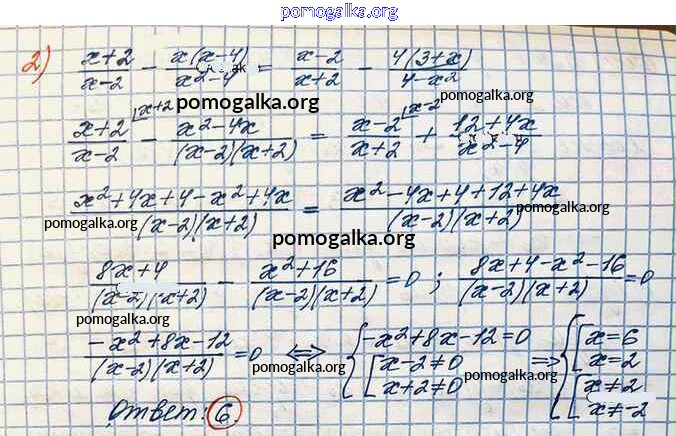 pomogalka.org
2) (x+2)/(x-2) - x(x-4)/(x²-4) = (x-2)/(x+2) - 4(3+x)/(4-x²)
pomogalka.org pomogalka.org
(x+2)/(x-2) ⌊x+2 - (x²-4x)/((x-2)(x+2)) = (x-2)/(x+2) ⌊x-2 + (12+4x)/(x²-4)
(x²+4x+4-x²+4x)/((x-2)(x+2)) = (x²-4x+4+12+4x)/((x-2)(x+2))
pomogalka.org pomogalka.org
pomogalka.org
(8x+4)/((x-2)(x+2)) - (x²+16)/((x-2)(x+2)) = 0 ; (8x+4-x²-16)/((x-2)(x+2)) = 0
pomogalka.org
(-x²+8x-12)/((x-2)(x+2)) = 0 ⟺ { -x²+8x-12=0 [ x-2≠0 x+2≠0 ⟹ { [ x=6 x=2 [ x≠2 x≠-2
pomogalka.org pomogalka.org pomogalka.org
Ответ: 6.